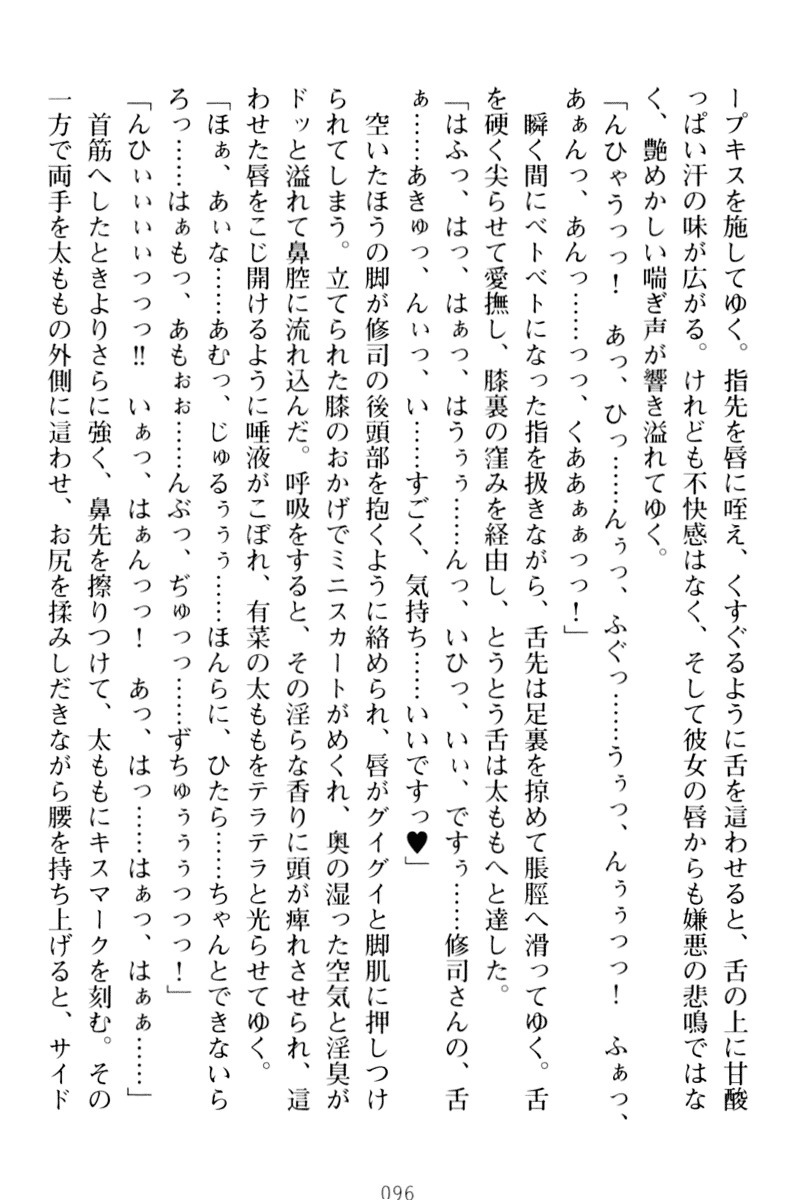 ープキスを施してゆく。指先を唇に咥え、くすぐるように舌を這わせると、舌の上に甘酸
っぱい汗の味が広がる。けれども不快感はなく、そして彼女の唇からも嫌悪の悲鳴ではな
く、艶めかしい喘ぎ声が響き溢れてゆく。
「んひゃうっっ！　あっ、ひっ……んぅっ、ふぐっ……うぅっ、んぅぅっっ！　ふぁっ、
あぁんっ、あんっ……っっ、くああぁぁっっ！」
　瞬く間にベトベトになった指を扱きながら、舌先は足裏を掠めて脹脛へ滑ってゆく。舌
を硬く尖らせて愛撫し、膝裏の窪みを経由し、とうとう舌は太ももへと達した。
「はふっ、はっ、はぁっ、はうぅぅ……んっ、いひっ、いぃ、ですぅ……修司さんの、舌
ぁ……あきゅっ、んぃっ、い……すごく、気持ち……いいですっ♥」
　空いたほうの脚が修司の後頭部を抱くように絡められ、唇がグイグイと脚肌に押しつけ
られてしまう。立てられた膝のおかげでミニスカートがめくれ、奥の湿った空気と淫臭が
ドッと溢れて鼻腔に流れ込んだ。呼吸をすると、その淫らな香りに頭が痺れさせられ、這
わせた唇をこじ開けるように唾液がこぼれ、有菜の太ももをテラテラと光らせてゆく。
「ほぁ、あぃな……あむっ、じゅるぅぅぅ……ほんらに、ひたら……ちゃんとできないら
ろっ……はぁもっ、あもぉぉ……んぶっ、ぢゅっっ……ずちゅぅぅぅっっっ！」
「んひぃぃぃぃっっっ‼　いぁっ、はぁんっっ！　あっ、はっ……はぁっ、はぁぁ……」
　首筋へしたときよりさらに強く、鼻先を擦りつけて、太ももにキスマークを刻む。その
一方で両手を太ももの外側に這わせ、お尻を揉みしだきながら腰を持ち上げると、サイド
096